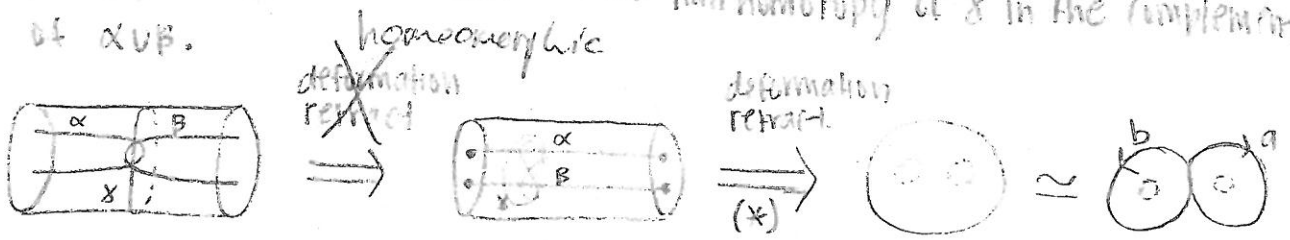 homotopy of γ in the complement
of α∪β.
homeomorphic
deformation
retract
deformation
retract
α β
γ
α
β
γ
(*)
≃
b a